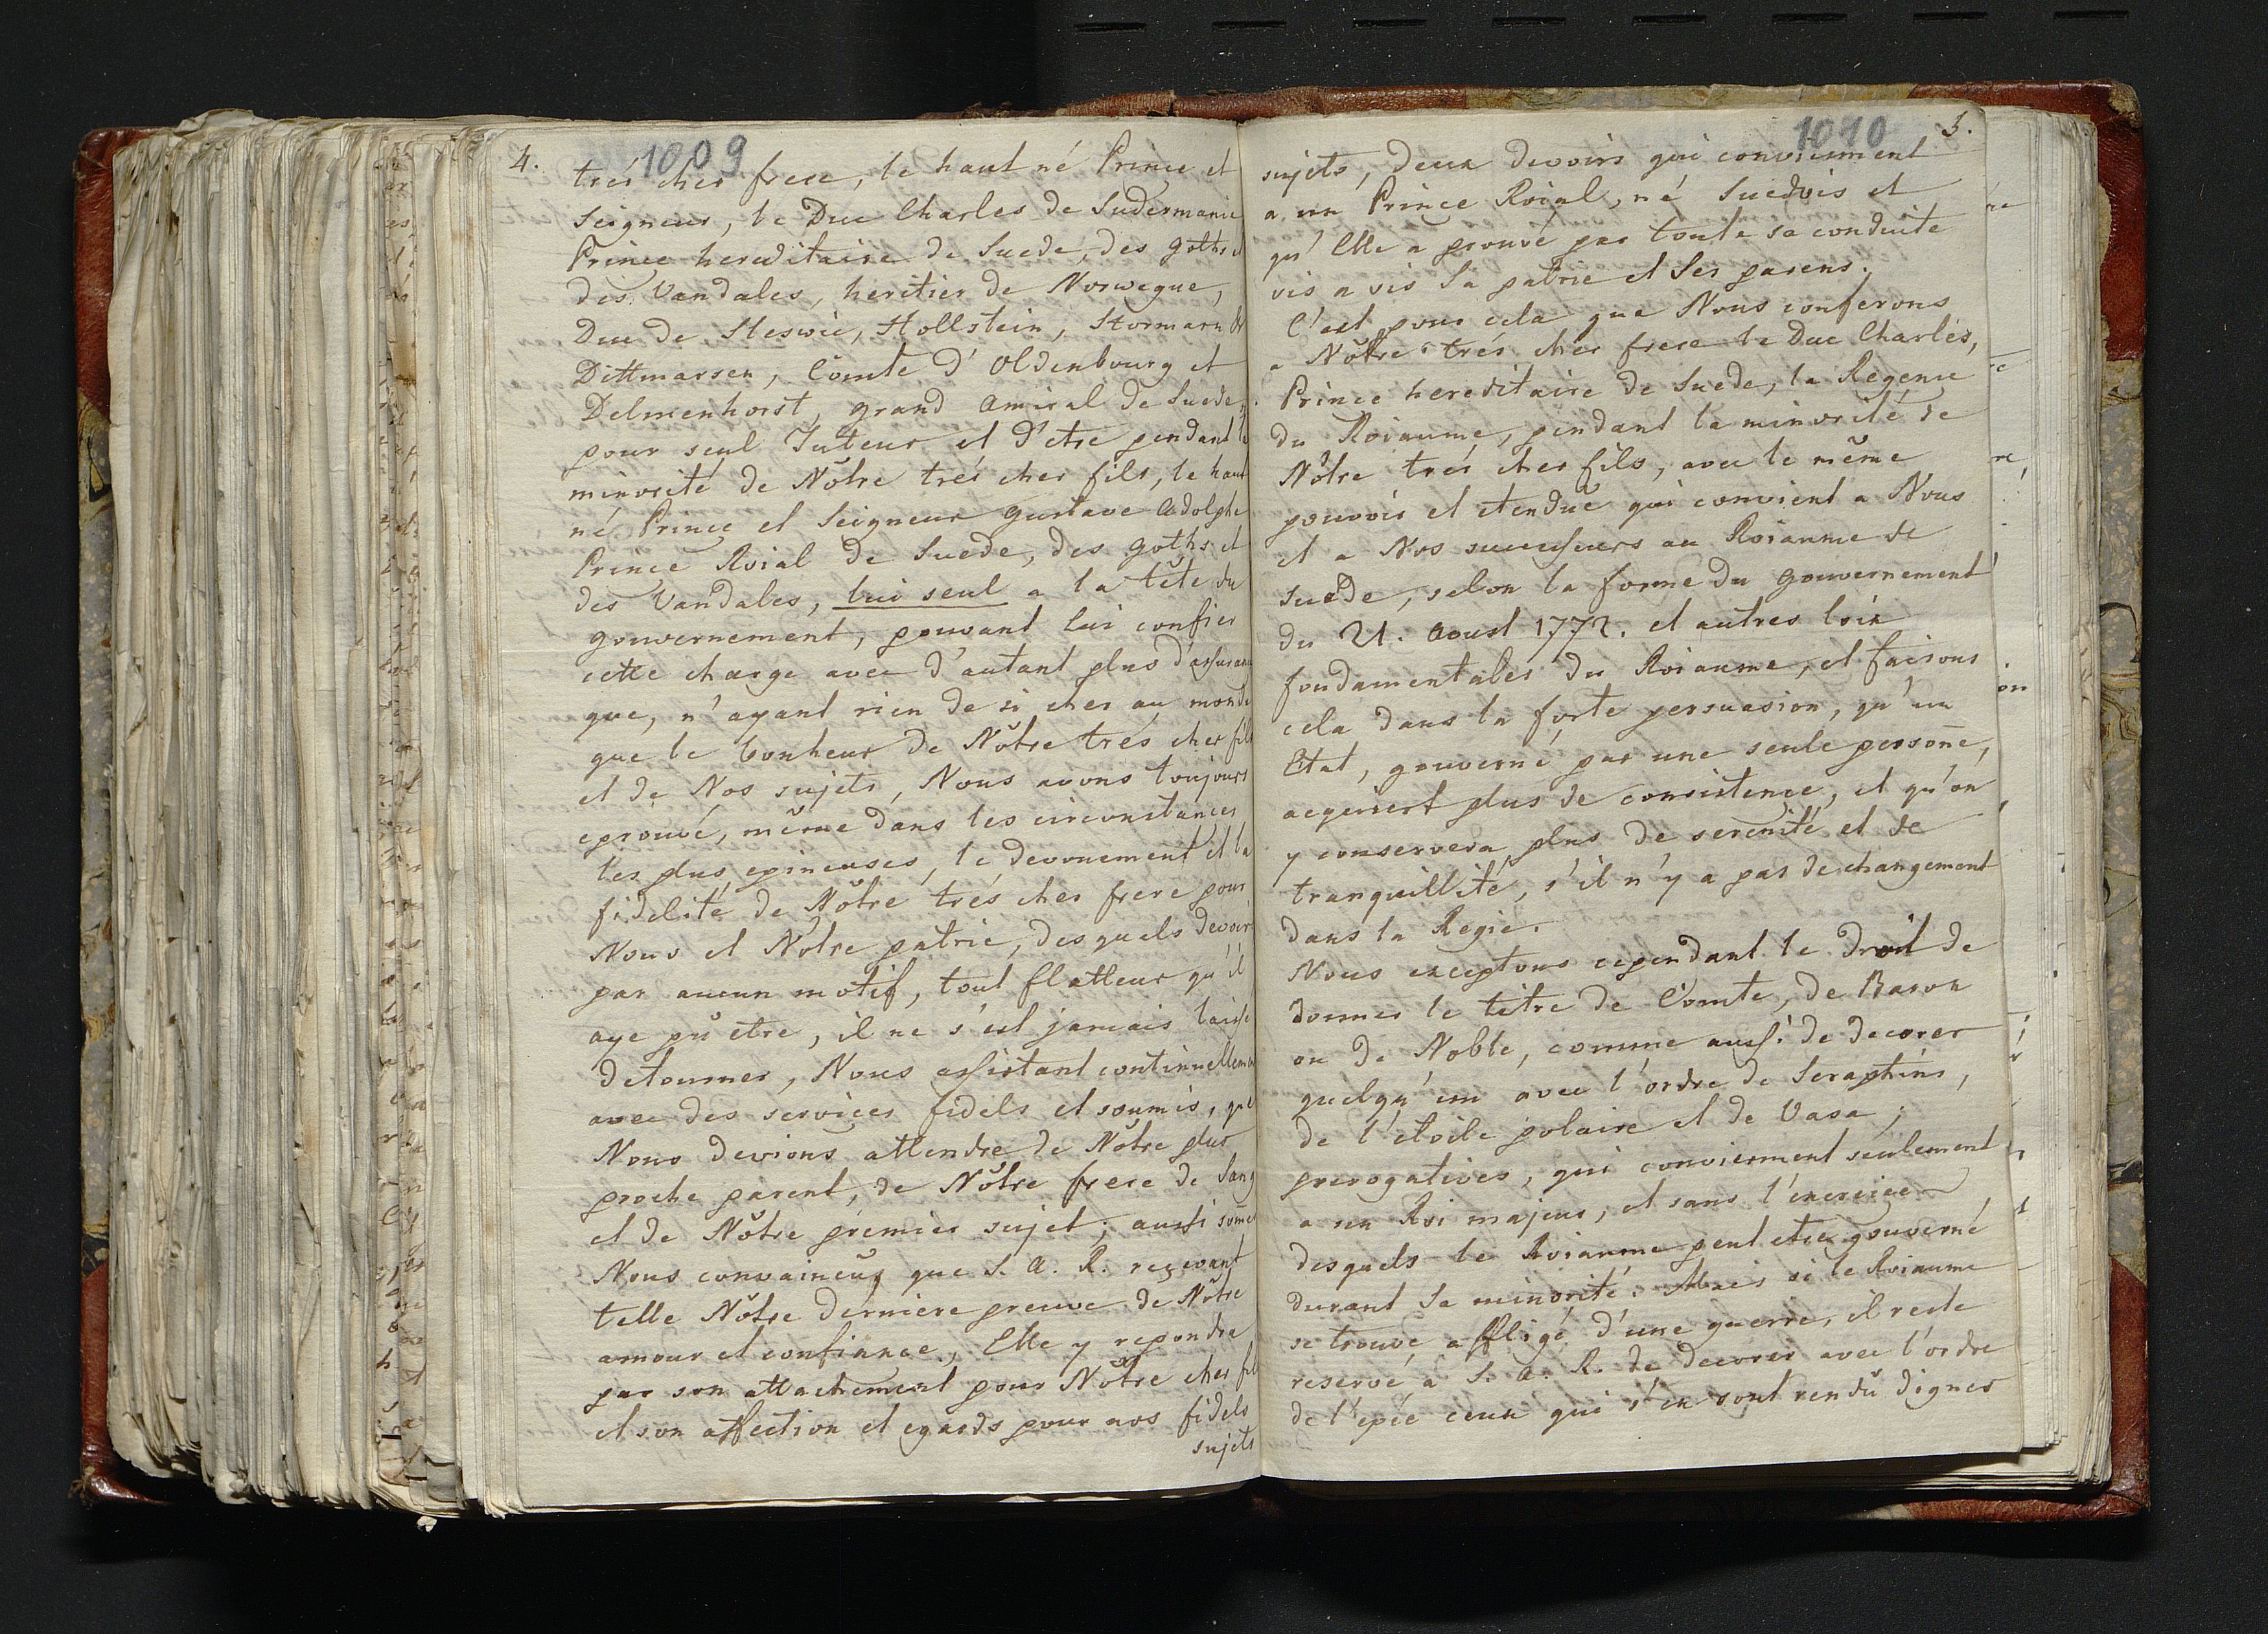 4.
1009
trés cher frere, le haut né Prince et
Seigneur, le Duc Charles de Sudermanie
Prince hereditaire de Suede, des Goths et
des Vandales, heritier de Norwegue,
Duc de Sleswic, Hollstein, Stormarn &
Dittmarsen, Comte d'Oldenbourg et
Delmenhorst, grand Amiral de Suede,
pour seul Tuteur et d'etre pendant la
minorité de Nôtre trés cher fils, le haut
né Prince et Seigneur Gustave Adolphe
Prince Roial de Suede, des Goths et
des Vandales, lui seul a la tête du
gouvernement, pouvant lui confier
cette charge avec d'autant plus d'assurance
que, n'ayant rien de si cher au monde
que le bonheur de Nôtre trés cher fils
et de Nos sujets, Nous avons toujours
eprouvé, même dans les circonstances
les plus epineuses, le devouement et la
fidelité de Nôtre trés cher frere pour
Nous et Nôtre patrie, desquels devoirs
par aucun motif, tout flatteur qu'il
aye pû etre, il ne s'est jamais laissé
detourner, Nous assistant continuellement
avec des services fidels et soumis, que
Nous devions attendre de Nôtre plus
proche parent, de Nôtre frere de Sang
et de Nôtre premier sujet; aussi somes
Nous convaincus que S. A. R. reçevant
telle Nôtre derniere preuve de Nôtre
amour et confiance, Elle y repondra
par son attachement pour Nôtre cher fils
et son affection et egards pour nos fidels
sujets
1010
5.
sujets, deux devoirs qui conviennent
a un Prince Roial, né Suedois et
qu'Elle a prouvé par toute sa conduite
vis a vis Sa patrie et Ses parens.
C'est pour cela que Nous conferons
a Nôtre trés cher frere le Duc Charles,
Prince hereditaire de Suede, la Regence
du Roiaume, pendant la minorité de
Nôtre trés cher fils, avec le même
pouvoir et etenduë qui convient a Nous
et a Nos successeurs au Roiaume de
Suede, selon la forme du Gouvernement
du 21. Aoust 1772. et autres loix
fondamentales du Roiaume, et faisons
cela dans la forte persuasion, qu'un
Etat, gouverné par une seule persone,
acquiert plus de consistence, et qu'on
y conservera plus de serenité et de
tranquillité, s'il n'y a pas de changement
dans la Regie.
Nous exceptons cependant le Droit de
donner le titre de Comte, de Baron
ou de Noble, comme aussi de decorer
quelqu'un avec l'ordre de Seraphins,
de l'etoile polaire et de Vasa;
prerogatives, qui conviennent seulement
a un Roi majeur, et sans l'exercice
desquels le Roiaume peut etre gouverné
durant Sa minorité. Mais si le Roiaume
se trouve affligé d'une guerre, il reste
reservé à S. A. R. de decorer avec l'ordre
de l'epée ceux qui s'en sont rendû dignes